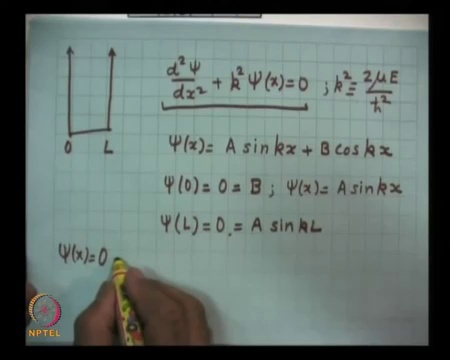 d²Ψ/dx² + k²Ψ(x)=0 ; k² ≡ 2μE/ħ²
Ψ(x)= A sinkx + B coskx
0 L
Ψ(0)=0=B ; Ψ(x)= A sinkx
Ψ(L)=0.= A sinkL
Ψ(x)=0
NPTEL